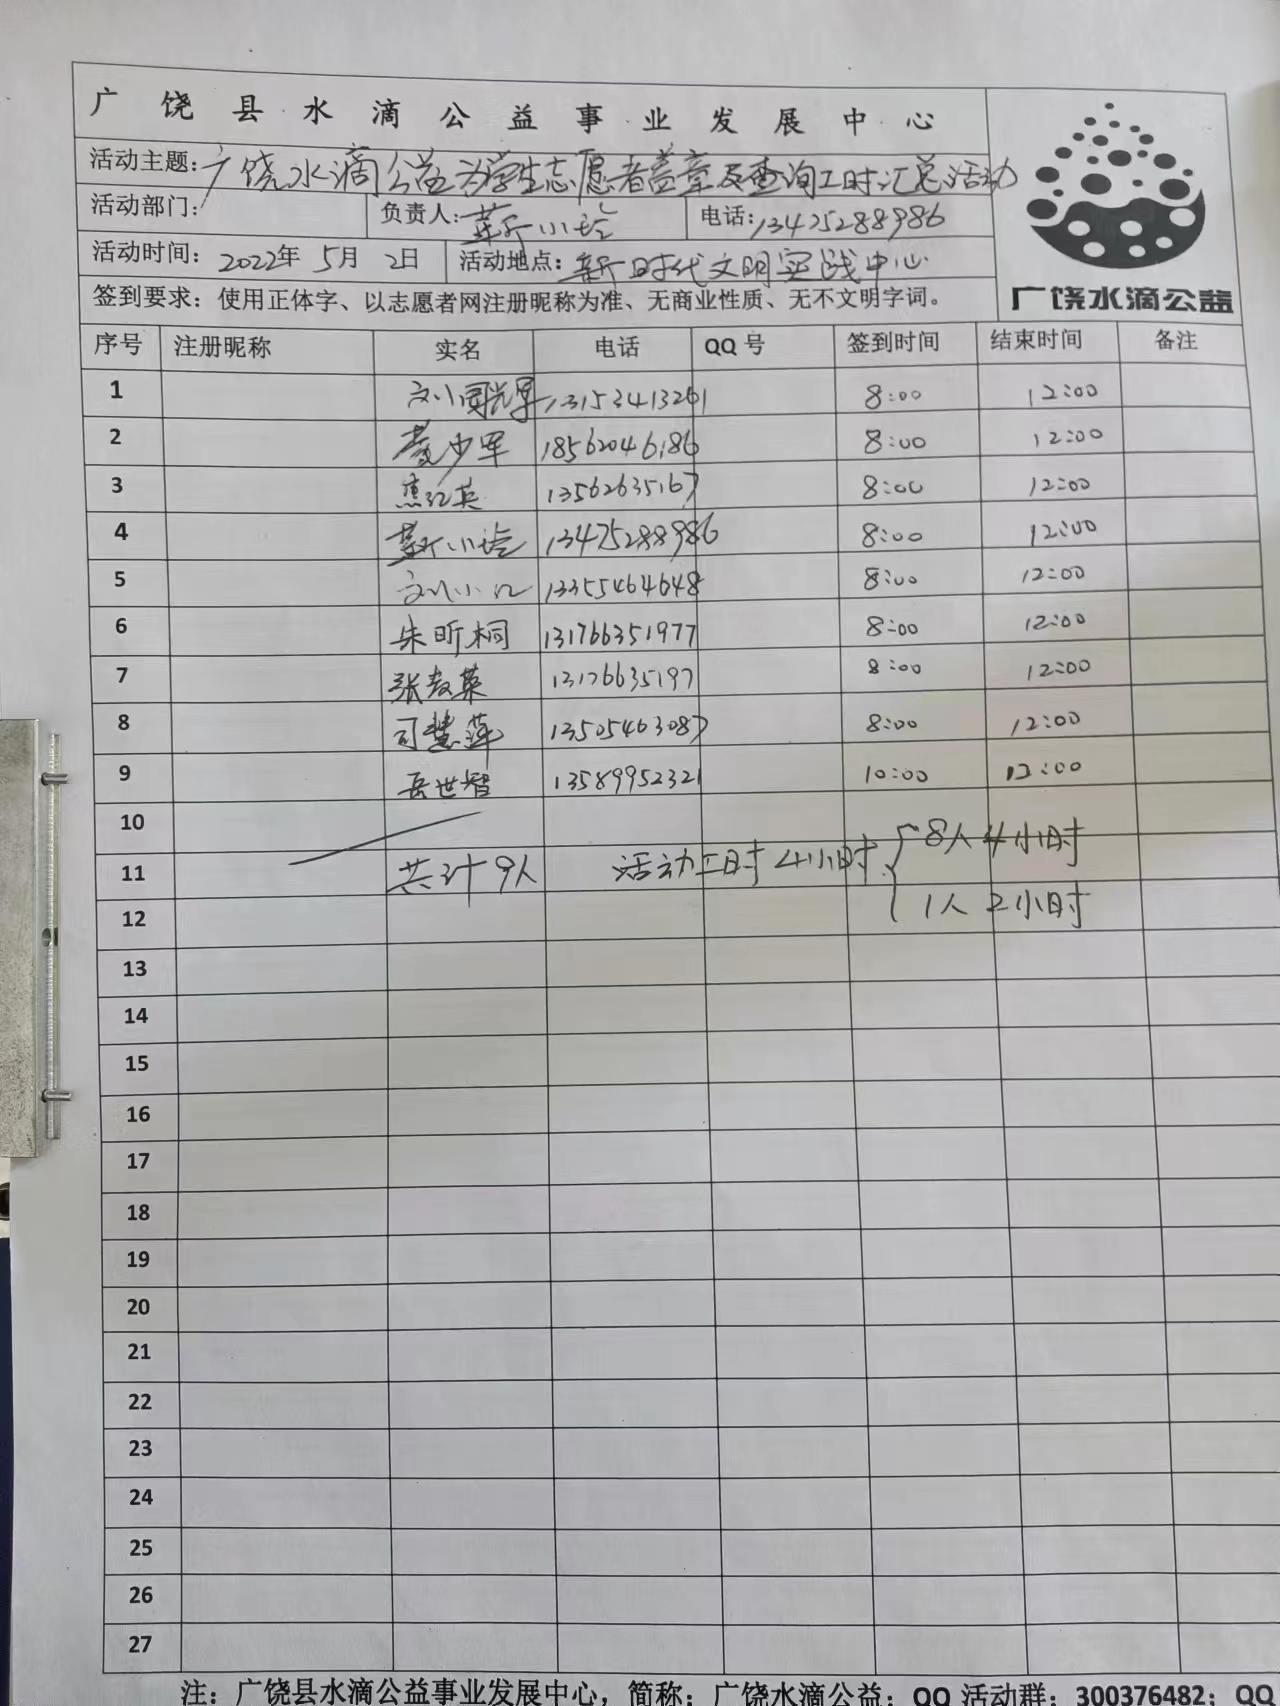 广饶县水滴公益事业发展中心
活动主题:广饶水滴公益为学生志愿者盖章及查询工时汇总活动
活动部门: 负责人: 小玲 电话:13475288986
活动时间: 2022年 5月 2日 活动地点:新时代文明实践中心
签到要求：使用正体字、以志愿者网注册昵称为准、无商业性质、无不文明字词。
广饶水滴公益
序号 注册昵称 实名 电话 QQ号 签到时间 结束时间 备注
1 13153413261 8:00 12:00
2 少军 18562046186 8:00 12:00
3 焦红英 13562635167 8:00 12:00
4 小玲 13475288986 8:00 12:00
5 刘小 13355464648 8:00 12:00
6 朱昕桐 131766351977 8:00 12:00
7 张 英 13176635197 8:00 12:00
8 司慧萍 13505463087 8:00 12:00
9 岳世智 13589952321 10:00 12:00
10
11 共计9人 活动工时4小时 8人4小时
12 1人2小时
13
14
15
16
17
18
19
20
21
22
23
24
25
26
27
注：广饶县水滴公益事业发展中心，简称：广饶水滴公益；QQ活动群：300376482；QQ